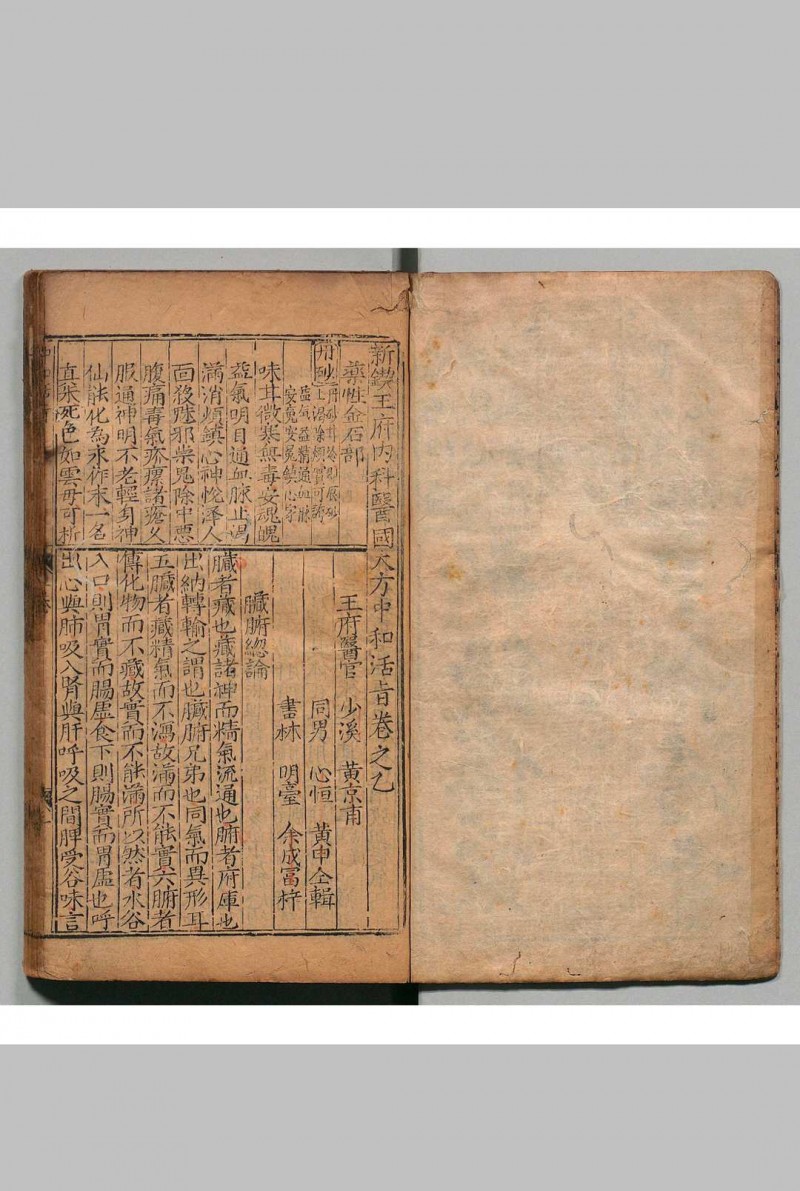 新鍥王府內科醫國大方中和活旨卷之乙
藥性金石部
丹砂
味甘微寒無毒安魂魄
益氣明目通血脉止渴
滿消煩鎮心神悅澤人
面殺魅邪祟鬼除中惡
腹痛毒氣疥瘻諸瘡久
服通神明不老輕身神
仙能化為汞作末一名
真朱光色如雲母可析
王府醫官 少溪 黃京甫
同男 心恒 黃申仝輯
書林 明臺 余成富梓
臟腑總論
臟者藏也藏諸神而精氣流通也腑者府庫也
出納轉輸之謂也臟腑兄弟也同氣而異形耳
五臟者藏精氣而不瀉故滿而不能實六腑者
傳化物而不藏故實而不能滿所以然者水谷
入口則胃實而腸虛食下則腸實而胃虛也呼
出心與肺吸入腎與肝呼吸之間脾受谷味言